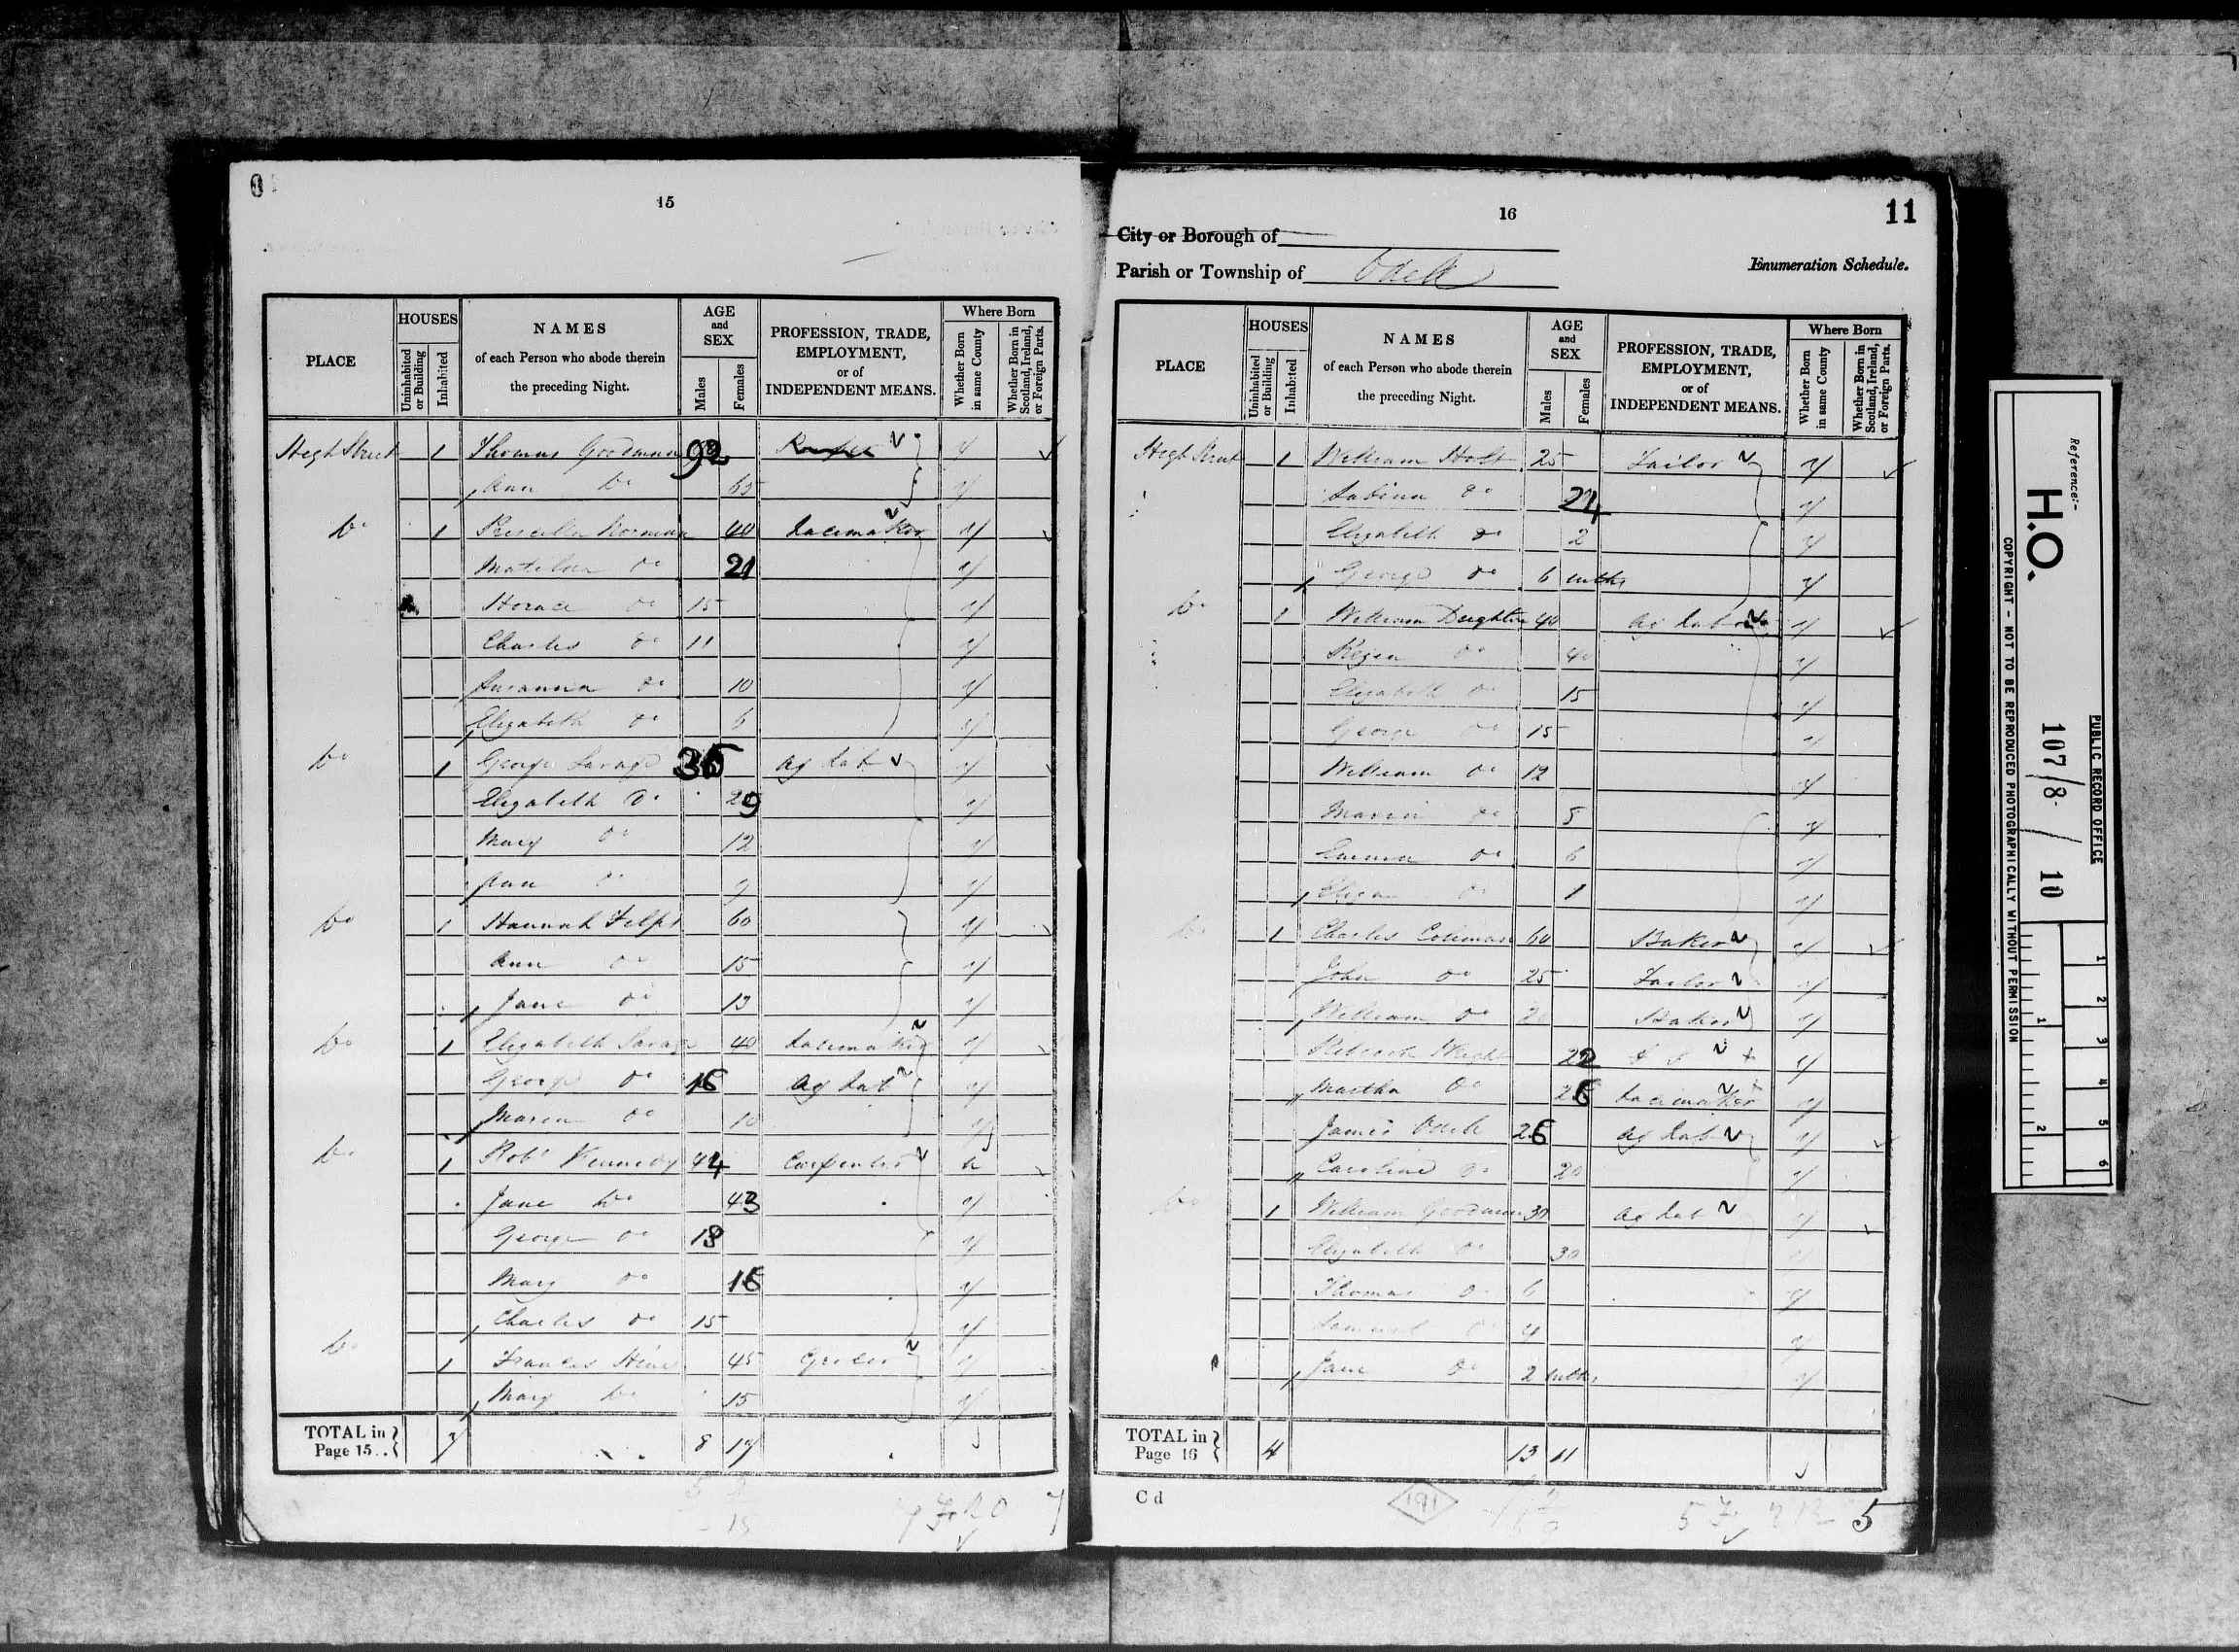 15
HOUSES
AGE and SEX
Where Born
PLACE
Uninhabited or Building
Inhabited
NAMES
of each Person who abode therein
the preceding Night.
Males
Females
PROFESSION, TRADE,
EMPLOYMENT,
or of
INDEPENDENT MEANS.
Whether Born in same County
Whether Born in Scotland, Ireland, or Foreign Parts.
High Street 1 Thomas Goodman y
Ann Do 65 y
Do 1 Priscilla Norman 40 Lacemaker y
Matilda Do 21 y
Horace Do 15 y
Charles Do 11 y
Susanna Do 10 y
Elizabeth Do 6 y
Do 1 George Savage 35 Ag Lab y
Elizabeth Do 29 y
Mary Do 12 y
Ann Do 9 y
Do 1 Hannah 60 y
Ann Do 15 y
Jane Do 13 y
Do 1 Elizabeth Savage 40 Lacemaker y
George Do 16 Ag Lab y
Maria Do 10 y
Do 1 Robt Kennedy 44 Carpenter n
Jane Do 43 y
George Do 18 y
Mary Do 16 y
Charles Do 15 y
Do 1 Frances 45 Grocer y
Mary Do 15 y
TOTAL in Page 15.. 7 8 17
16
11
City or Borough of
Parish or Township of Odell
Enumeration Schedule.
HOUSES
AGE and SEX
Where Born
PLACE
Uninhabited or Building
Inhabited
NAMES
of each Person who abode therein
the preceding Night.
Males
Females
PROFESSION, TRADE,
EMPLOYMENT,
or of
INDEPENDENT MEANS.
Whether Born in same County
Whether Born in Scotland, Ireland, or Foreign Parts.
High Street 1 William Holt 25 Tailor y
Sabina Do 24 y
Elizabeth Do 2 y
George Do 6 mths y
Do 1 William Deighton 40 Ag Lab y
Do 40 y
Elizabeth Do 15 y
George Do 15 y
William Do 12 y
Maria Do y
Emma Do 6 y
Eliza Do 1 y
Do 1 Charles Coleman 60 Baker y
John Do 25 Tailor y
William Do Baker y
Rebecca Wright 22 F S y
Martha Do 26 Lacemaker y
James Odell 26 Ag Lab y
Caroline Do 20 y
Do 1 William Goodman 30 Ag Lab y
Elizabeth Do 30
Thomas Do 6 y
Samuel Do 4 y
Jane Do 2 mths y
TOTAL in Page 16 4 13 11
C d
191
5
Reference:-
H.O. 107/8/10
PUBLIC RECORD OFFICE
COPYRIGHT - NOT TO BE REPRODUCED PHOTOGRAPHICALLY WITHOUT PERMISSION
1
2
3
4
5
6
1
2